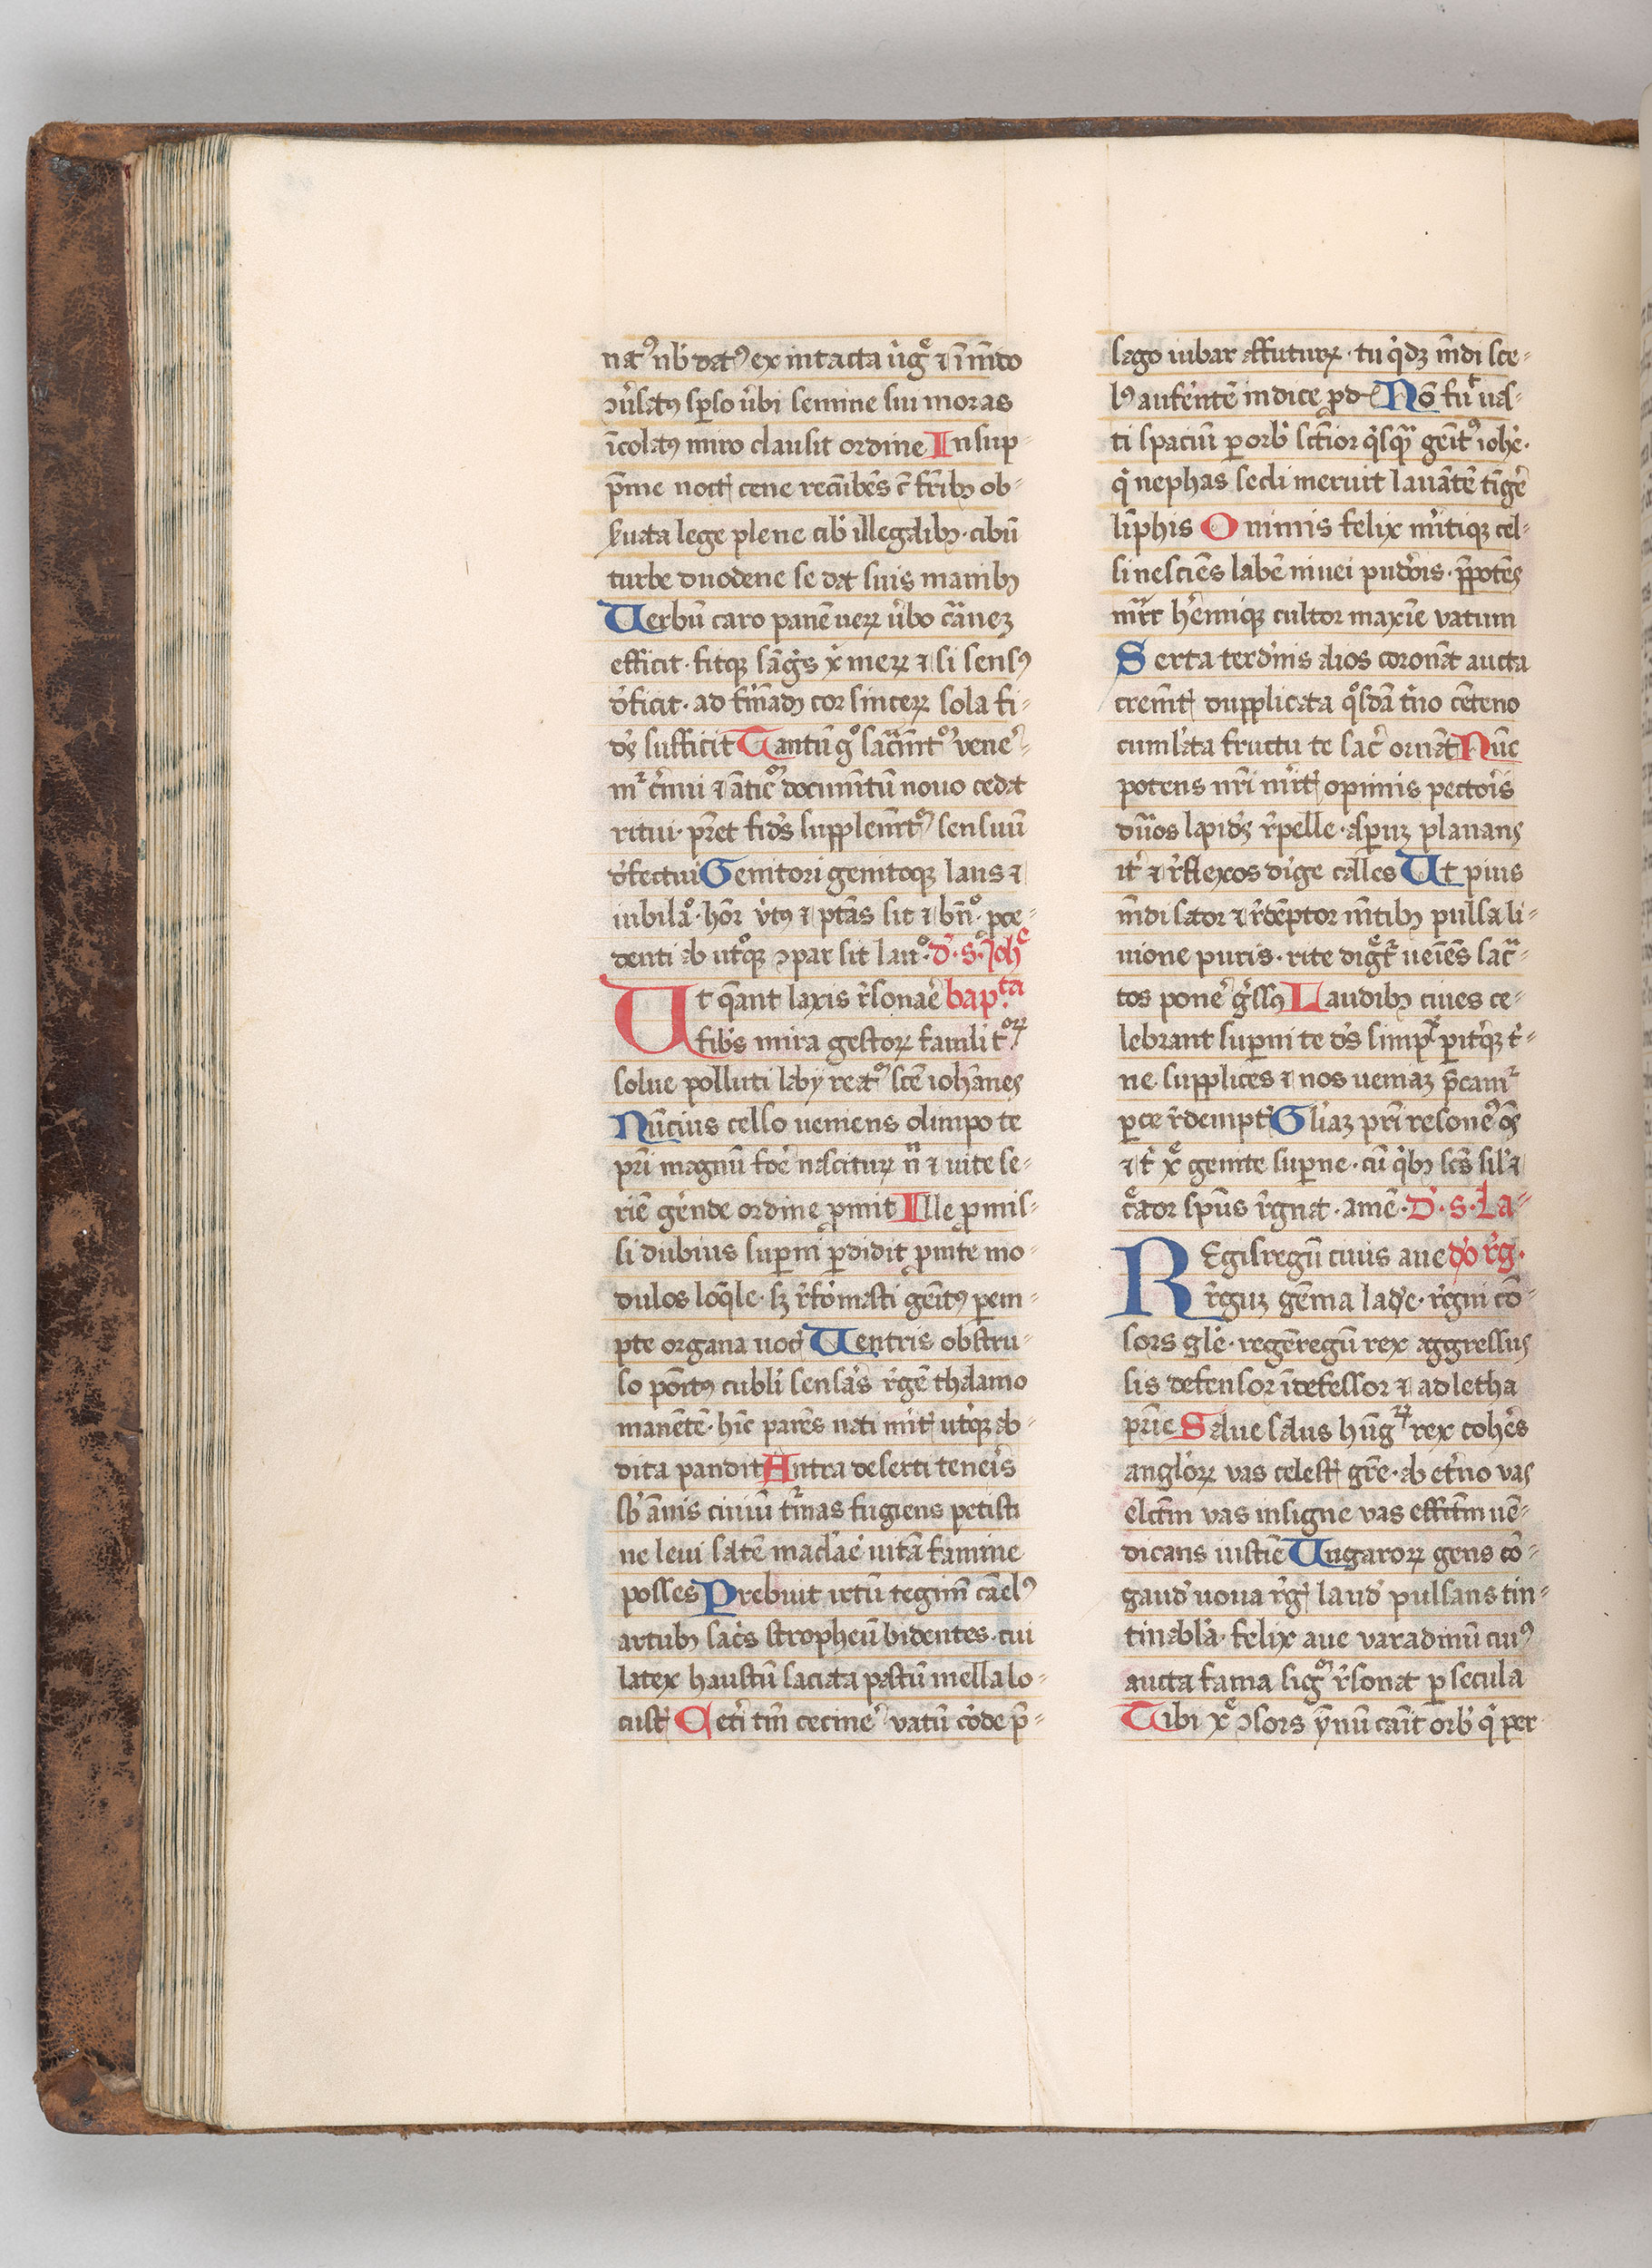 natꝰ nb̾ datꝰ ex intacta v̾gᷓe ⁊ ī mūdo
ꝯv̾satꝰ sp̄so v̾bi semine sui moras
īcolatꝰ miro clausit ordine In sup-
p̄me noctꝭ cene recūbēs cū frībꝫ ob-
ẜuata lege plene cib̾ illegalibꝫ. cibū
turbe duodene se dat suis manibꝫ
Uerbū caro panē veꝝ v̾bo carnez
efficit. fitqꝫ sāg̾s x̾ meꝝ ⁊ si sensꝰ
d̾ficit. ad fir̄madꝫ cor sinceꝝ sola fi-
dꝭ sufficit Tantū g̊ sac̄mtꝰ vene-
mꝛ c̾nui ⁊ ātiqꝰ documtū nouo cedat
ritui. pr̄et fid̾s supplem̄tꝰ sensuū
d̾fectui Genitori genitoqꝫ laus ⁊
iubila͛o. hōr v̾tꝰ ⁊ ptās sit ⁊ bn̄͛o. ꝓce-
denti ab utoqꝫ ꝯpar sit lau͛o. d̾. s. Joh̄e
Ut q̄ant laxis r̾sonaē bapta
fib̾s mira gestoꝝ famuli toꝝ
solue polluti laby reatꝰ scē iohānes
Nūcius celso veniens olimpo te
pr̄i magnū foē nascituꝝ nn̄ ⁊ vite se-
riē ge̾nde ordine ꝓmit Ille ꝓmis-
si dubius sup̄ni ꝑdidit ꝓmte mo-
dulos loq̄le. sꝫ r̾fo̾masti geītꝰ ꝑem-
pte organa vocꝭ Uentris obstru-
so poītꝰ cubli̾ sensa̾s r̾gē thalamo
manētē. hīc parēs nati mi̾tꝭ ut̾qꝫ ab-
dita pandit Antra deserti tenei̾s
sb̾ ānis ciuiū tr̾mas fugiens petisti
ne leui saltē macla̾e vitā famine
posses Prebuit irtū tegimē camelꝰ
artubꝫ sac̾s stropheū bidentes. cui
latex haustū saciata pastū mella lo-
custꝭ Cet̾i tm̄ cecine̾ vatū co̾de p̄-
sago iubar affutuꝝ. tu q̾dꝫ m̄di sce-
lꝰ aufe̾ntē indice ꝓdꝭ Nō fuꝭt vas-
ti spaciū ꝑ orb̾ sc̄tior q̾sqᷓ geītꝰ iohe̾.
q̾ nephas secli meruit lauātē tīge̾
līphis O nimis felix mi̾tiqꝫ cel-
si nesciēs labē niuei pudo̾is. p̄potēs
mr̄r he̾miqꝫ cultor maxīe vatum
Serta terde̾nis alios coronāt aucta
crem̄tꝭ dupplicata qͦsdā t̾no cēteno
cumla̾ta fructu te sac̾ ornāt Nūc
potens nr̄i mi̾tꝭ opimis pectoīs
duᷓos lapid̾ꝫ r̾pelle. aspuꝫ planans
it̾ ⁊ r̾flexos d̾ige calles Ut pius
m̄di sator ⁊ r̾dēptor mētibꝫ pulsa li-
uione puris. rite dig̾t̾ veiēs sacᷓ-
tos pone̾ g̾ssꝰ Laudibꝫ ciues ce-
lebrant suꝑni te ds̾ simplᷓ ꝑit̾qꝫ t̾-
ne supplices ⁊ nos veniaꝫ p̄camꝛ
ꝑce r̾demptꝭ Gli̾aꝫ pr̄i resone̾ oēs
⁊ t̾ xᷓe genite suꝑne. cū q̾bꝫ scs̄ sil̾⁊
cᷓeator spūs r̾gnat. amē. D̾. s. La-
REgis regū ciuis aue do̾ r̾g.
r̾guꝫ gēma lad̾e. r̾gni cō-
sors gle̾. regē regū rex aggressus
sis defensor īdefessor ⁊ ad letha
prīe Salue salus hūgꝝ rex cohe̾s
anglo̾ꝝ vas celestꝭ gr̄e. ab et̾no vas
elc̄tm vas insigne vas effc̄tm vē-
dicans iusticē Ungaroꝝ gens cō-
gaud̾ noua r̾gꝭ laud̾ pulsans tin-
tinabla̾. felix aue varadinū cuiꝰ
aucta fama sigꝰ r̾sonat ꝑ secula
Tibi xᷓe ꝯsors ym̄nū canit orb̾ q̾ per